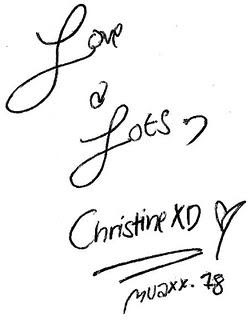 Love
a
Lots,
Christine XD ♡
muaxx. 78